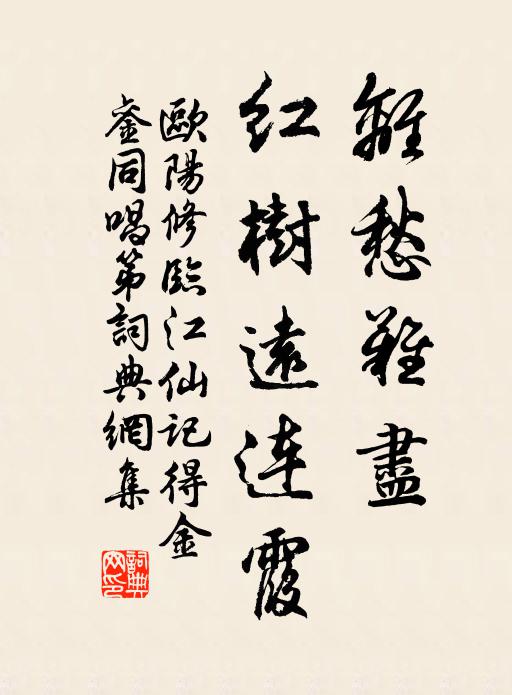 離愁難盡
紅樹遠連霞
歐陽修臨江仙記得金
銮同唱第詞典網集
詞典网印